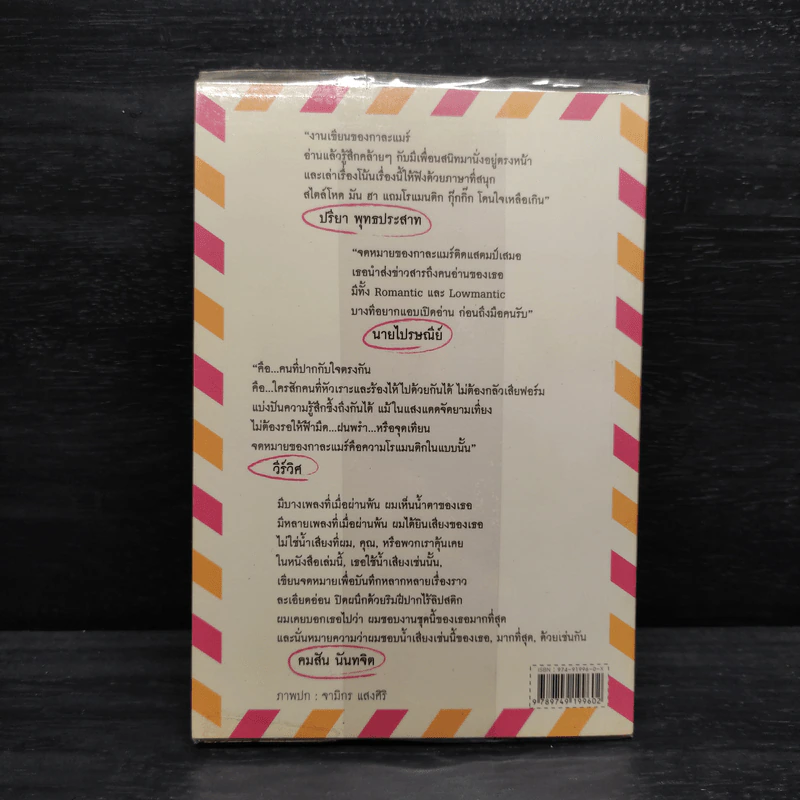 “งานเขียนของกาละแมร์
อ่านแล้วรู้สึกคล้ายๆ กับมีเพื่อนสนิทมานั่งอยู่ตรงหน้า
และเล่าเรื่องโน้นเรื่องนี้ให้ฟังด้วยภาษาที่สนุก
สไตล์โหด มัน ฮา แถมโรแมนติก กุ๊กกิ๊ก โดนใจเหลือเกิน”
ปรียา พุทธประสาท
“จดหมายของกาละแมร์ติดแสตมป์เสมอ
เธอนำส่งข่าวสารถึงคนอ่านของเธอ
มีทั้ง Romantic และ Lowmantic
บางทีอยากแอบเปิดอ่าน ก่อนถึงมือคนรับ”
นายไปรษณีย์
“คือ...คนที่ปากกับใจตรงกัน
คือ...ใครสักคนที่หัวเราะและร้องไห้ไปด้วยกันได้ ไม่ต้องกลัวเสียฟอร์ม
แบ่งปันความรู้สึกซึ้งถึงกันได้ แม้ในแสงแดดจัดยามเที่ยง
ไม่ต้องรอให้ฟ้ามืด...ฝนพรำ...หรือจุดเทียน
จดหมายของกาละแมร์คือความโรแมนติกในแบบนั้น”
วีร์วิศ
มีบางเพลงที่เมื่อผ่านพ้น ผมเห็นน้ำตาของเธอ
มีหลายเพลงที่เมื่อผ่านพ้น ผมได้ยินเสียงของเธอ
ไม่ใช่น้ำเสียงที่ผม, คุณ, หรือพวกเราคุ้นเคย
ในหนังสือเล่มนี้, เธอใช้น้ำเสียงเช่นนั้น,
เขียนจดหมายเพื่อบันทึกหลากหลายเรื่องราว
ละเอียดอ่อน ปิดผนึกด้วยริมฝีปากไร้ลิปสติก
ผมเคยบอกเธอไปว่า ผมชอบงานชุดนี้ของเธอมากที่สุด
และนั่นหมายความว่าผมชอบน้ำเสียงเช่นนี้ของเธอ, มากที่สุด, ด้วยเช่นกัน
คมสัน นันทจิต
ภาพปก : จามิกร แสงศิริ
ISBN : 974-91996-0-X
9 789749 199602